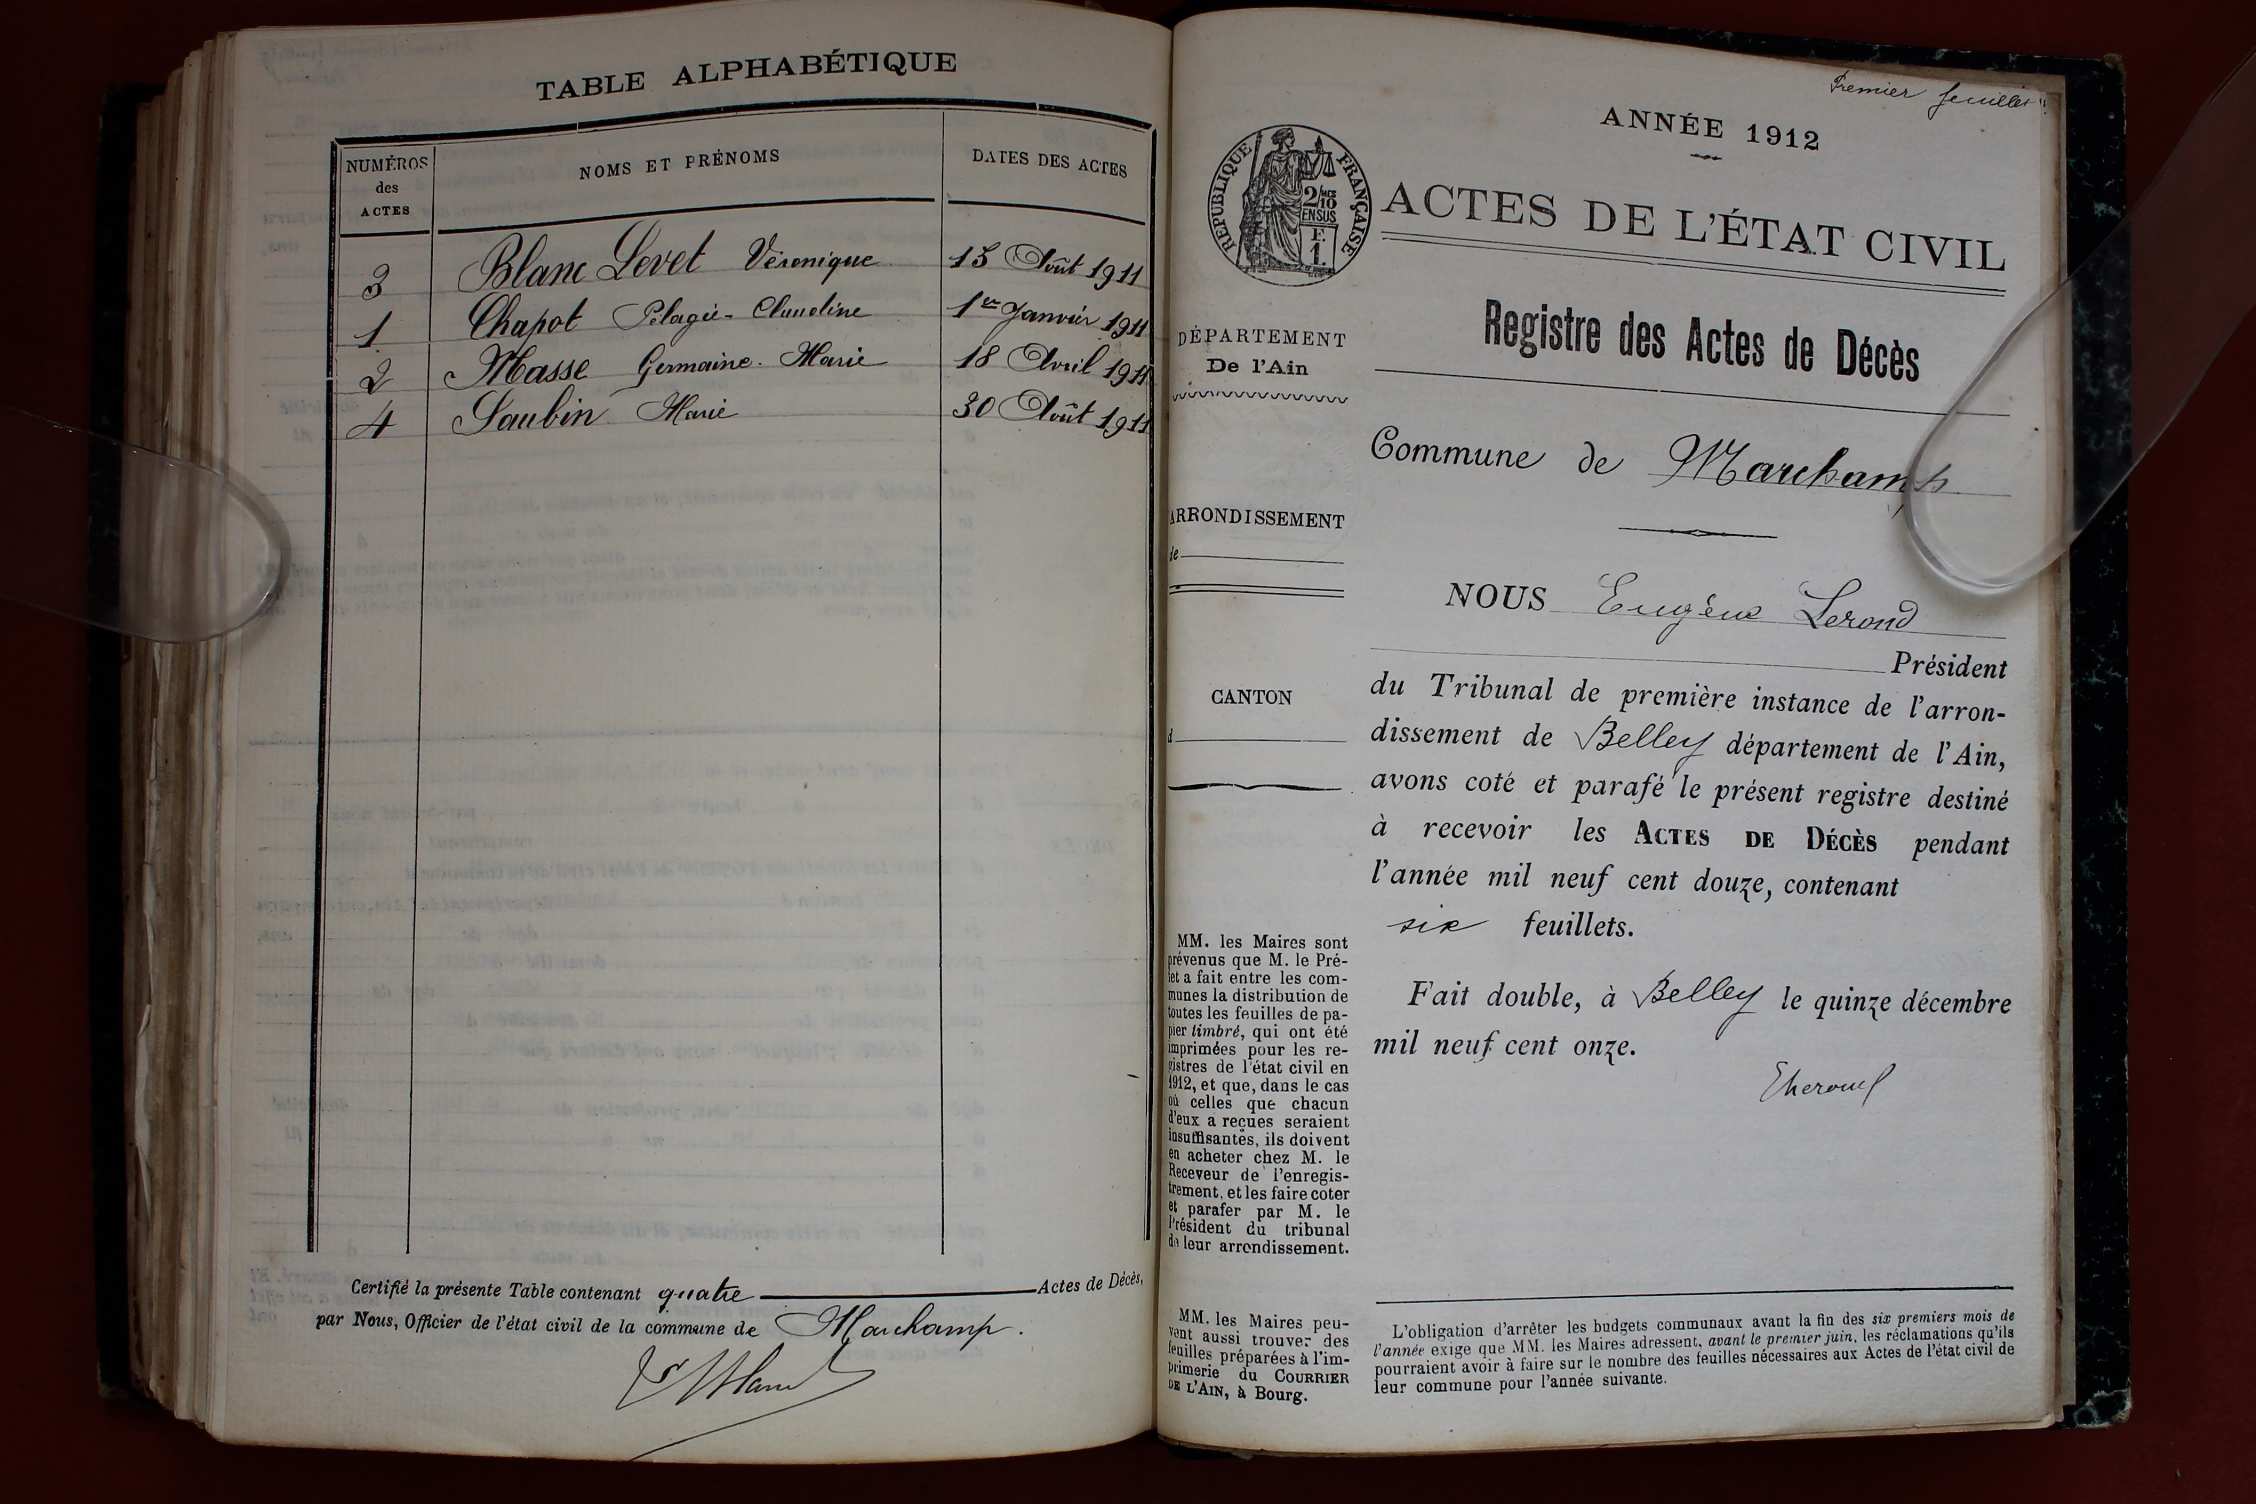 TABLE ALPHABÉTIQUE
NUMÉROS des ACTES
NOMS ET PRÉNOMS
DATES DES ACTES
3 Blanc Levet Véronique 15 Août 1911
1 Chapot Pélagie-Claudine 1er Janvier 1911
2 Masse Germaine-Marie 18 Avril 1911
4 Saubin Marie 30 Août 1911
Certifié la présente Table contenant quatre Actes de Décès,
par Nous, Officier de l'état civil de la commune de Marchamp.
Premier feuillet
ANNÉE 1912
RÉPUBLIQUE FRANÇAISE
2/10
EN SUS
F.
1.
ACTES DE L'ÉTAT CIVIL
Registre des Actes de Décès
DÉPARTEMENT
De l'Ain
Commune de Marchamp
ARRONDISSEMENT
de
CANTON
d
NOUS Eugène Lerond
Président
du Tribunal de première instance de l'arron-
dissement de Belley département de l'Ain,
avons coté et parafé le présent registre destiné
à recevoir les ACTES DE DÉCÈS pendant
l'année mil neuf cent douze, contenant
six feuillets.
Fait double, à Belley le quinze décembre
mil neuf cent onze.
MM. les Maires sont
prévenus que M. le Pré-
fet a fait entre les com-
munes la distribution de
toutes les feuilles de pa-
pier timbré, qui ont été
imprimées pour les re-
gistres de l'état civil en
1912, et que, dans le cas
où celles que chacun
d'eux a reçues seraient
insuffisantes, ils doivent
en acheter chez M. le
Receveur de l'enregis-
trement, et les faire coter
et parafer par M. le
Président du tribunal
de leur arrondissement.
MM. les Maires peu-
vent aussi trouver des
feuilles préparées à l'im-
primerie du COURRIER
DE L'AIN, à Bourg.
L'obligation d'arrêter les budgets communaux avant la fin des six premiers mois de
l'année exige que MM. les Maires adressent, avant le premier juin, les réclamations qu'ils
pourraient avoir à faire sur le nombre des feuilles nécessaires aux Actes de l'état civil de
leur commune pour l'année suivante.